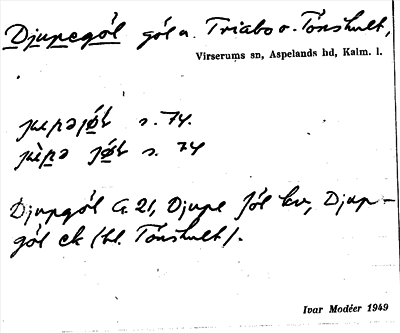 Djupegöl göl a. Triabo o. Tönshult,
Virserums sn, Aspelands hd, Kalm. l.
s. 74.
s. 74
Djupgöl G. 21, Djupe föl kv, Djup-
göl ek (bl. Tönshult).
Ivar Modéer 1949